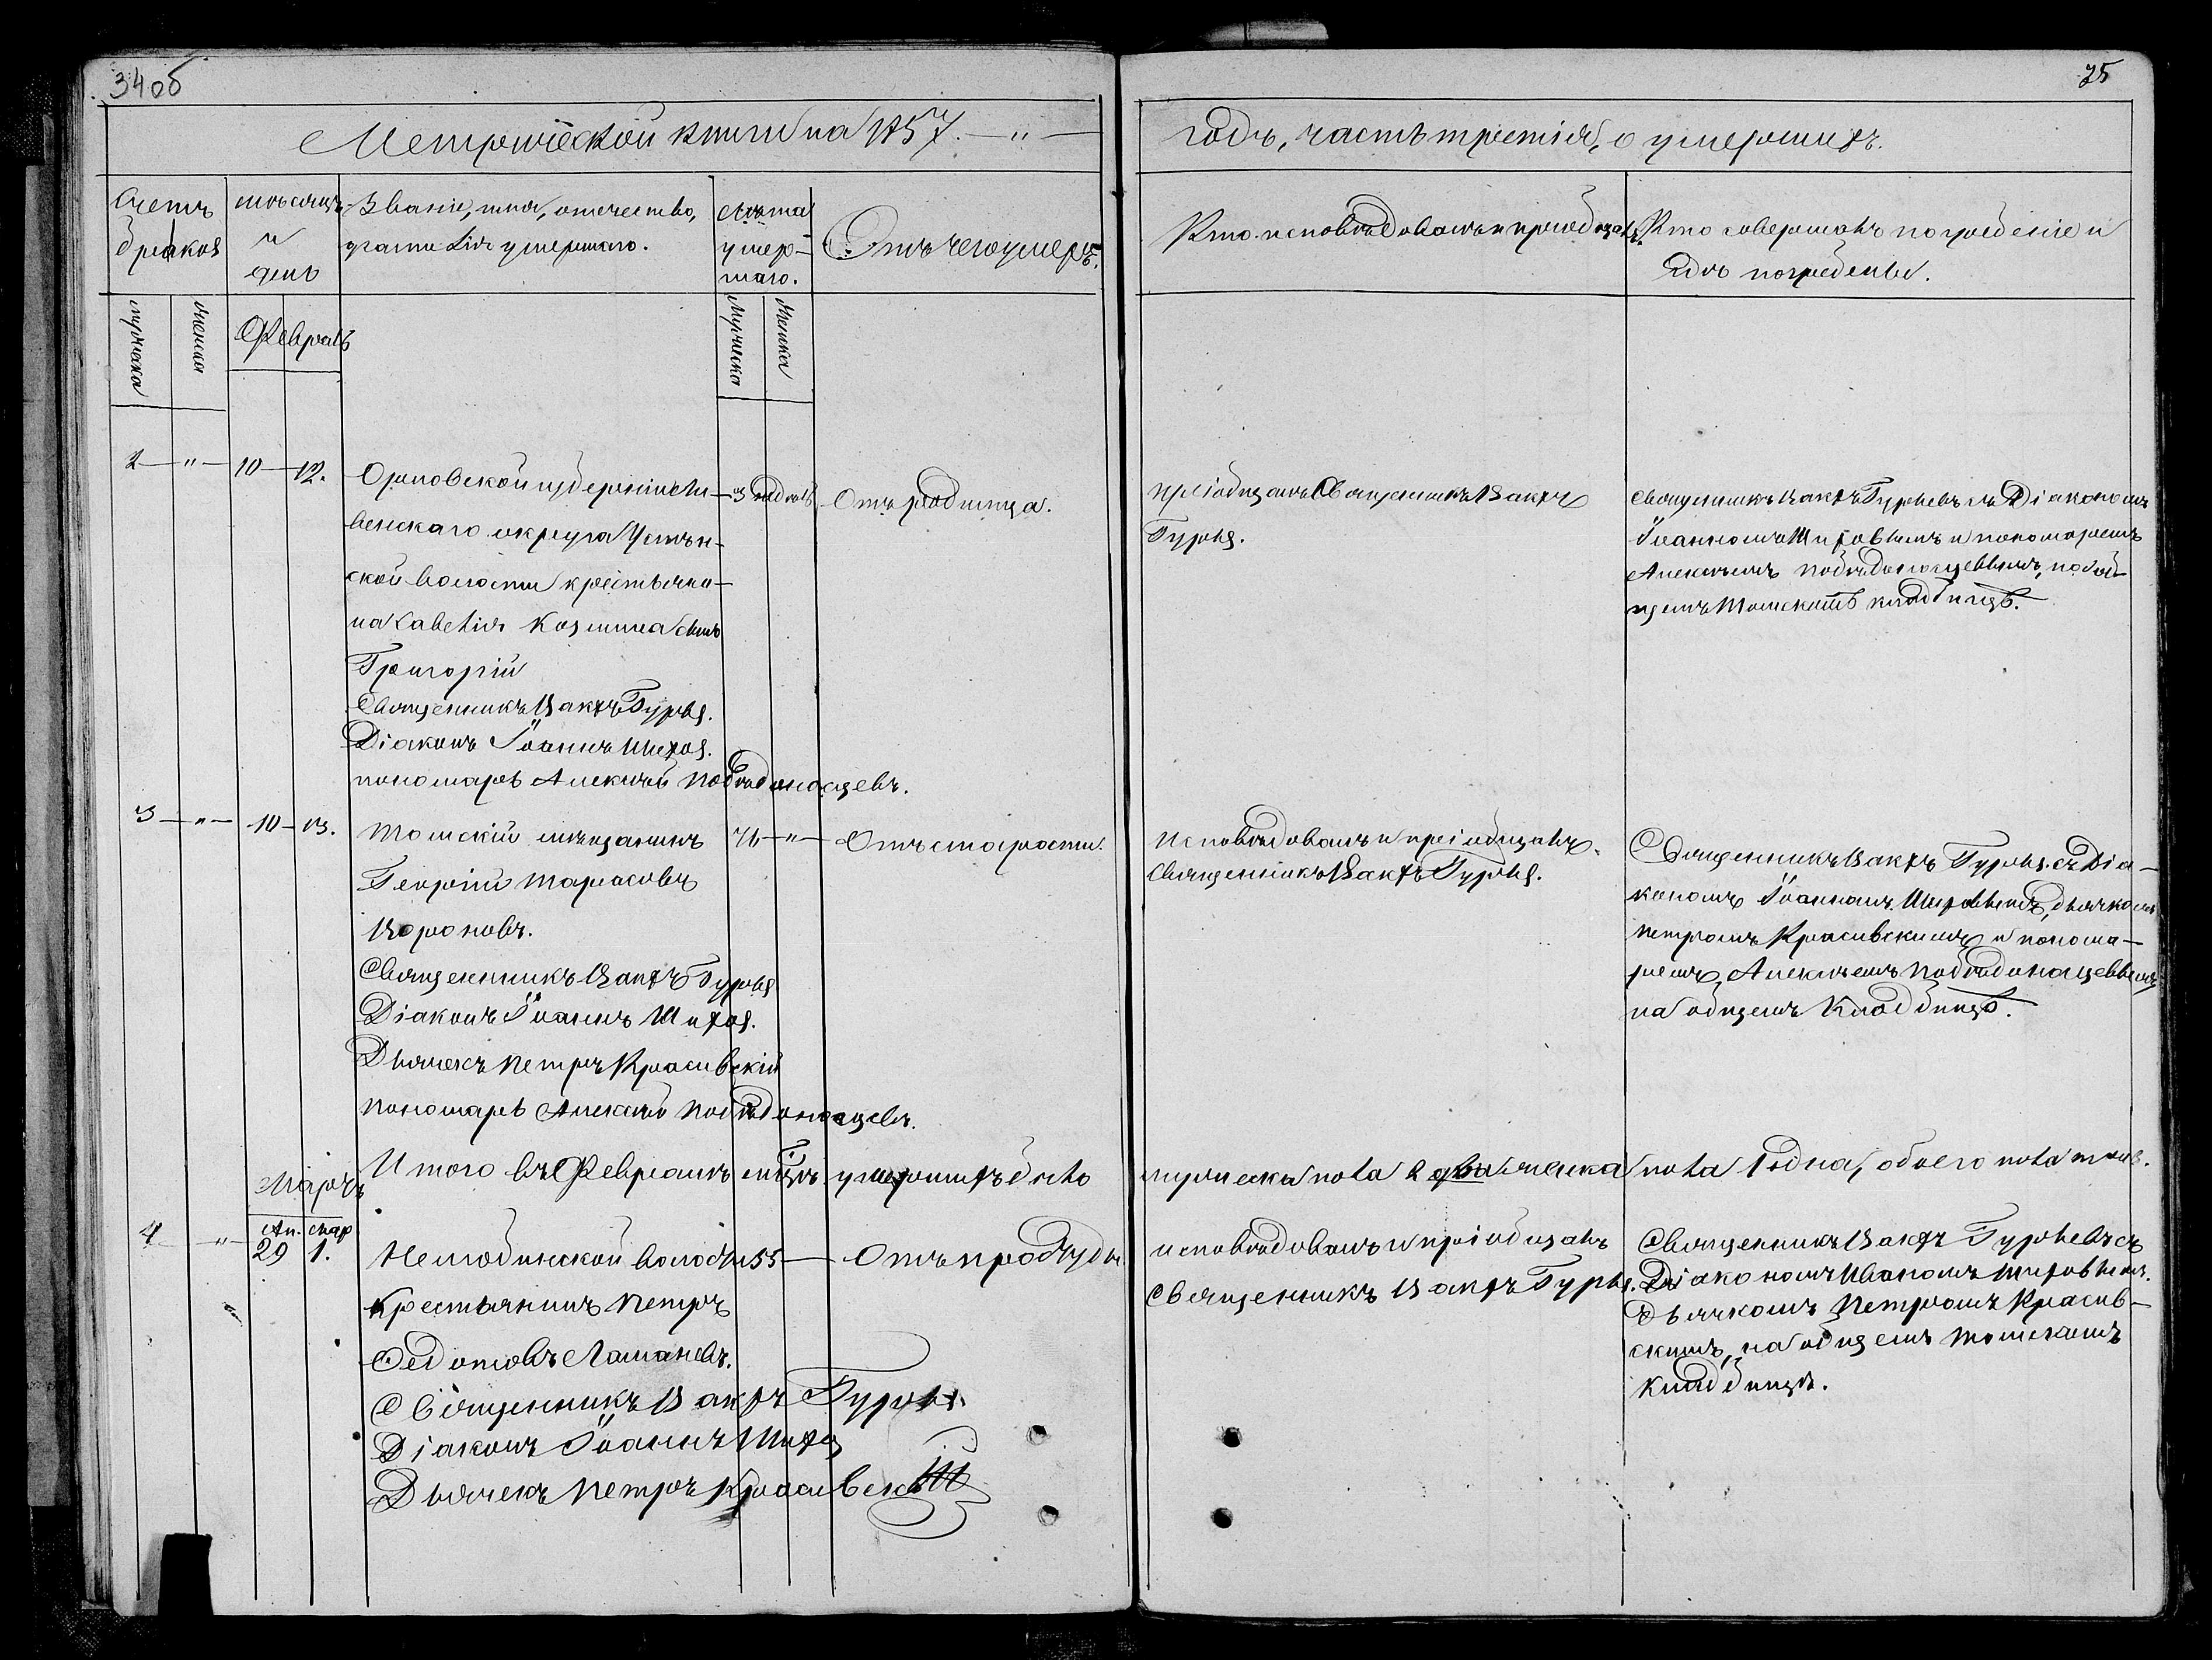 34об
35
Метрической книги на 1857. — " —
годъ, часть третія, о умершихъ.
Счетъ
браков
мѣсяцъ
и
день
Званіе, имя, отчество,
фамилія умершаго.
Лѣта
умер-
шаго.
Отъ чего умеръ.
Кто исповѣдовалъ и пріобщалъ.
Кто совершалъ погребеніе и
гдѣ погребены.
мужеска
женска
Февраль
Мужеска
Женска
2 — " — 10 — 12.
губерніи
венскаго округа
ской волости крестьяни-
на Савелія Козмина сынъ
Григорій
Священникъ Вакхъ Гурьев.
Діаконъ Іоаннъ Шихов.
пономарь Алексѣй Побѣдоносцевъ.
3 годовъ
Отъ родимца.
пріобщалъ Священникъ Вакхъ
Гурьев.
Священникъ Вакхъ Гурьевъ съ Діакономъ
Іоанномъ Шиховымъ и пономаремъ
Алексѣемъ Побѣдоносцевымъ, на об-
щемъ Томскомъ кладбищѣ.
3 — " — 10 — 13.
Томскій мѣщанинъ
Георгій Тарасовъ
Вороновъ.
Священникъ Вакхъ Гурьев
Діаконъ Іоаннъ Шихов.
Дьячекъ Петръ Красивскій
пономарь Алексѣй Побѣдоносцевъ.
71 — " —
Отъ старости.
Исповѣдовалъ и пріобщалъ
Священникъ Вакхъ Гурьев.
Священникъ Вакхъ Гурьев. съ Діа-
кономъ Іоанномъ Шиховымъ, дьячкомъ
Петромъ Красивскимъ и понома-
ремъ Алексѣемъ Побѣдоносцевымъ
на общемъ Кладбищѣ.
Итого въ Февралѣ мцѣ умершихъ было
мужеска пола 2 два женска пола 1 одна, обоего пола
Мартъ
мар
4 — " — 29 1.
волости
Крестьянинъ Петръ
Федотовъ
Священникъ Вакхъ Гурьев.
Діаконъ Іоаннъ Шихов
Дьячекъ Петръ Красивскій
55 —
Отъ простуды.
исповѣдовалъ и пріобщалъ
Священникъ Вакхъ Гурьев.
Священникъ Вакхъ Гурьевъ съ
Діакономъ Иваномъ Шиховымъ.
Дьячкомъ Петромъ Красив-
скимъ, на общемъ Томскомъ
кладбищѣ.